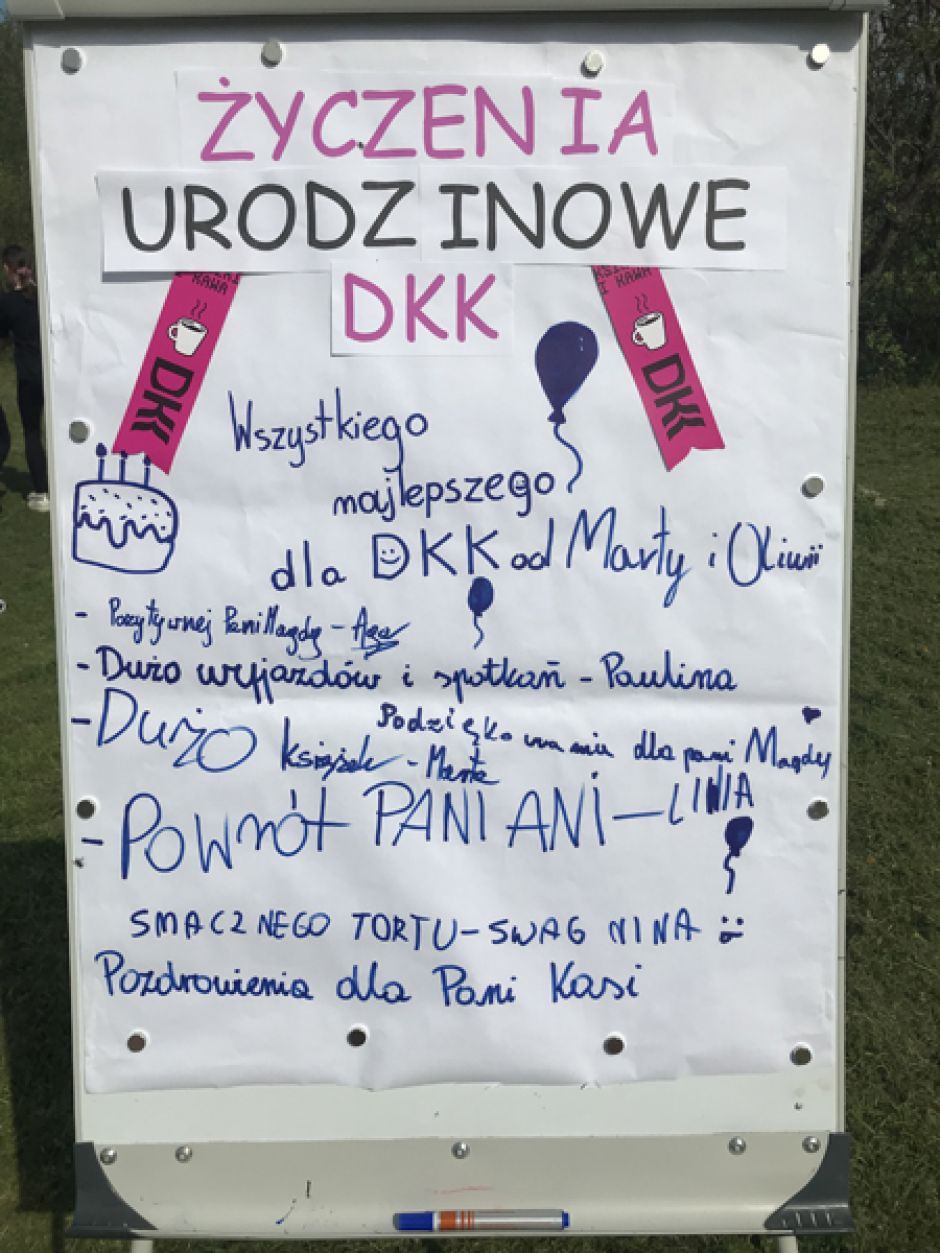 ŻYCZENIA
URODZINOWE
DKK
I KAWA
DKK
I KAWA
DKK
Wszystkiego
najlepszego
dla DKK od Marty i Oliwii
- Pozytywnej Pani Magdy - Aga
- Dużo wyjazdów i spotkań - Paulina
- Dużo książek - Marta
Podziękowania dla pani Magdy
- Powrót PANI ANI - LINIA
SMACZNEGO TORTU - SWAG NINA
Pozdrowienia dla Pani Kasi